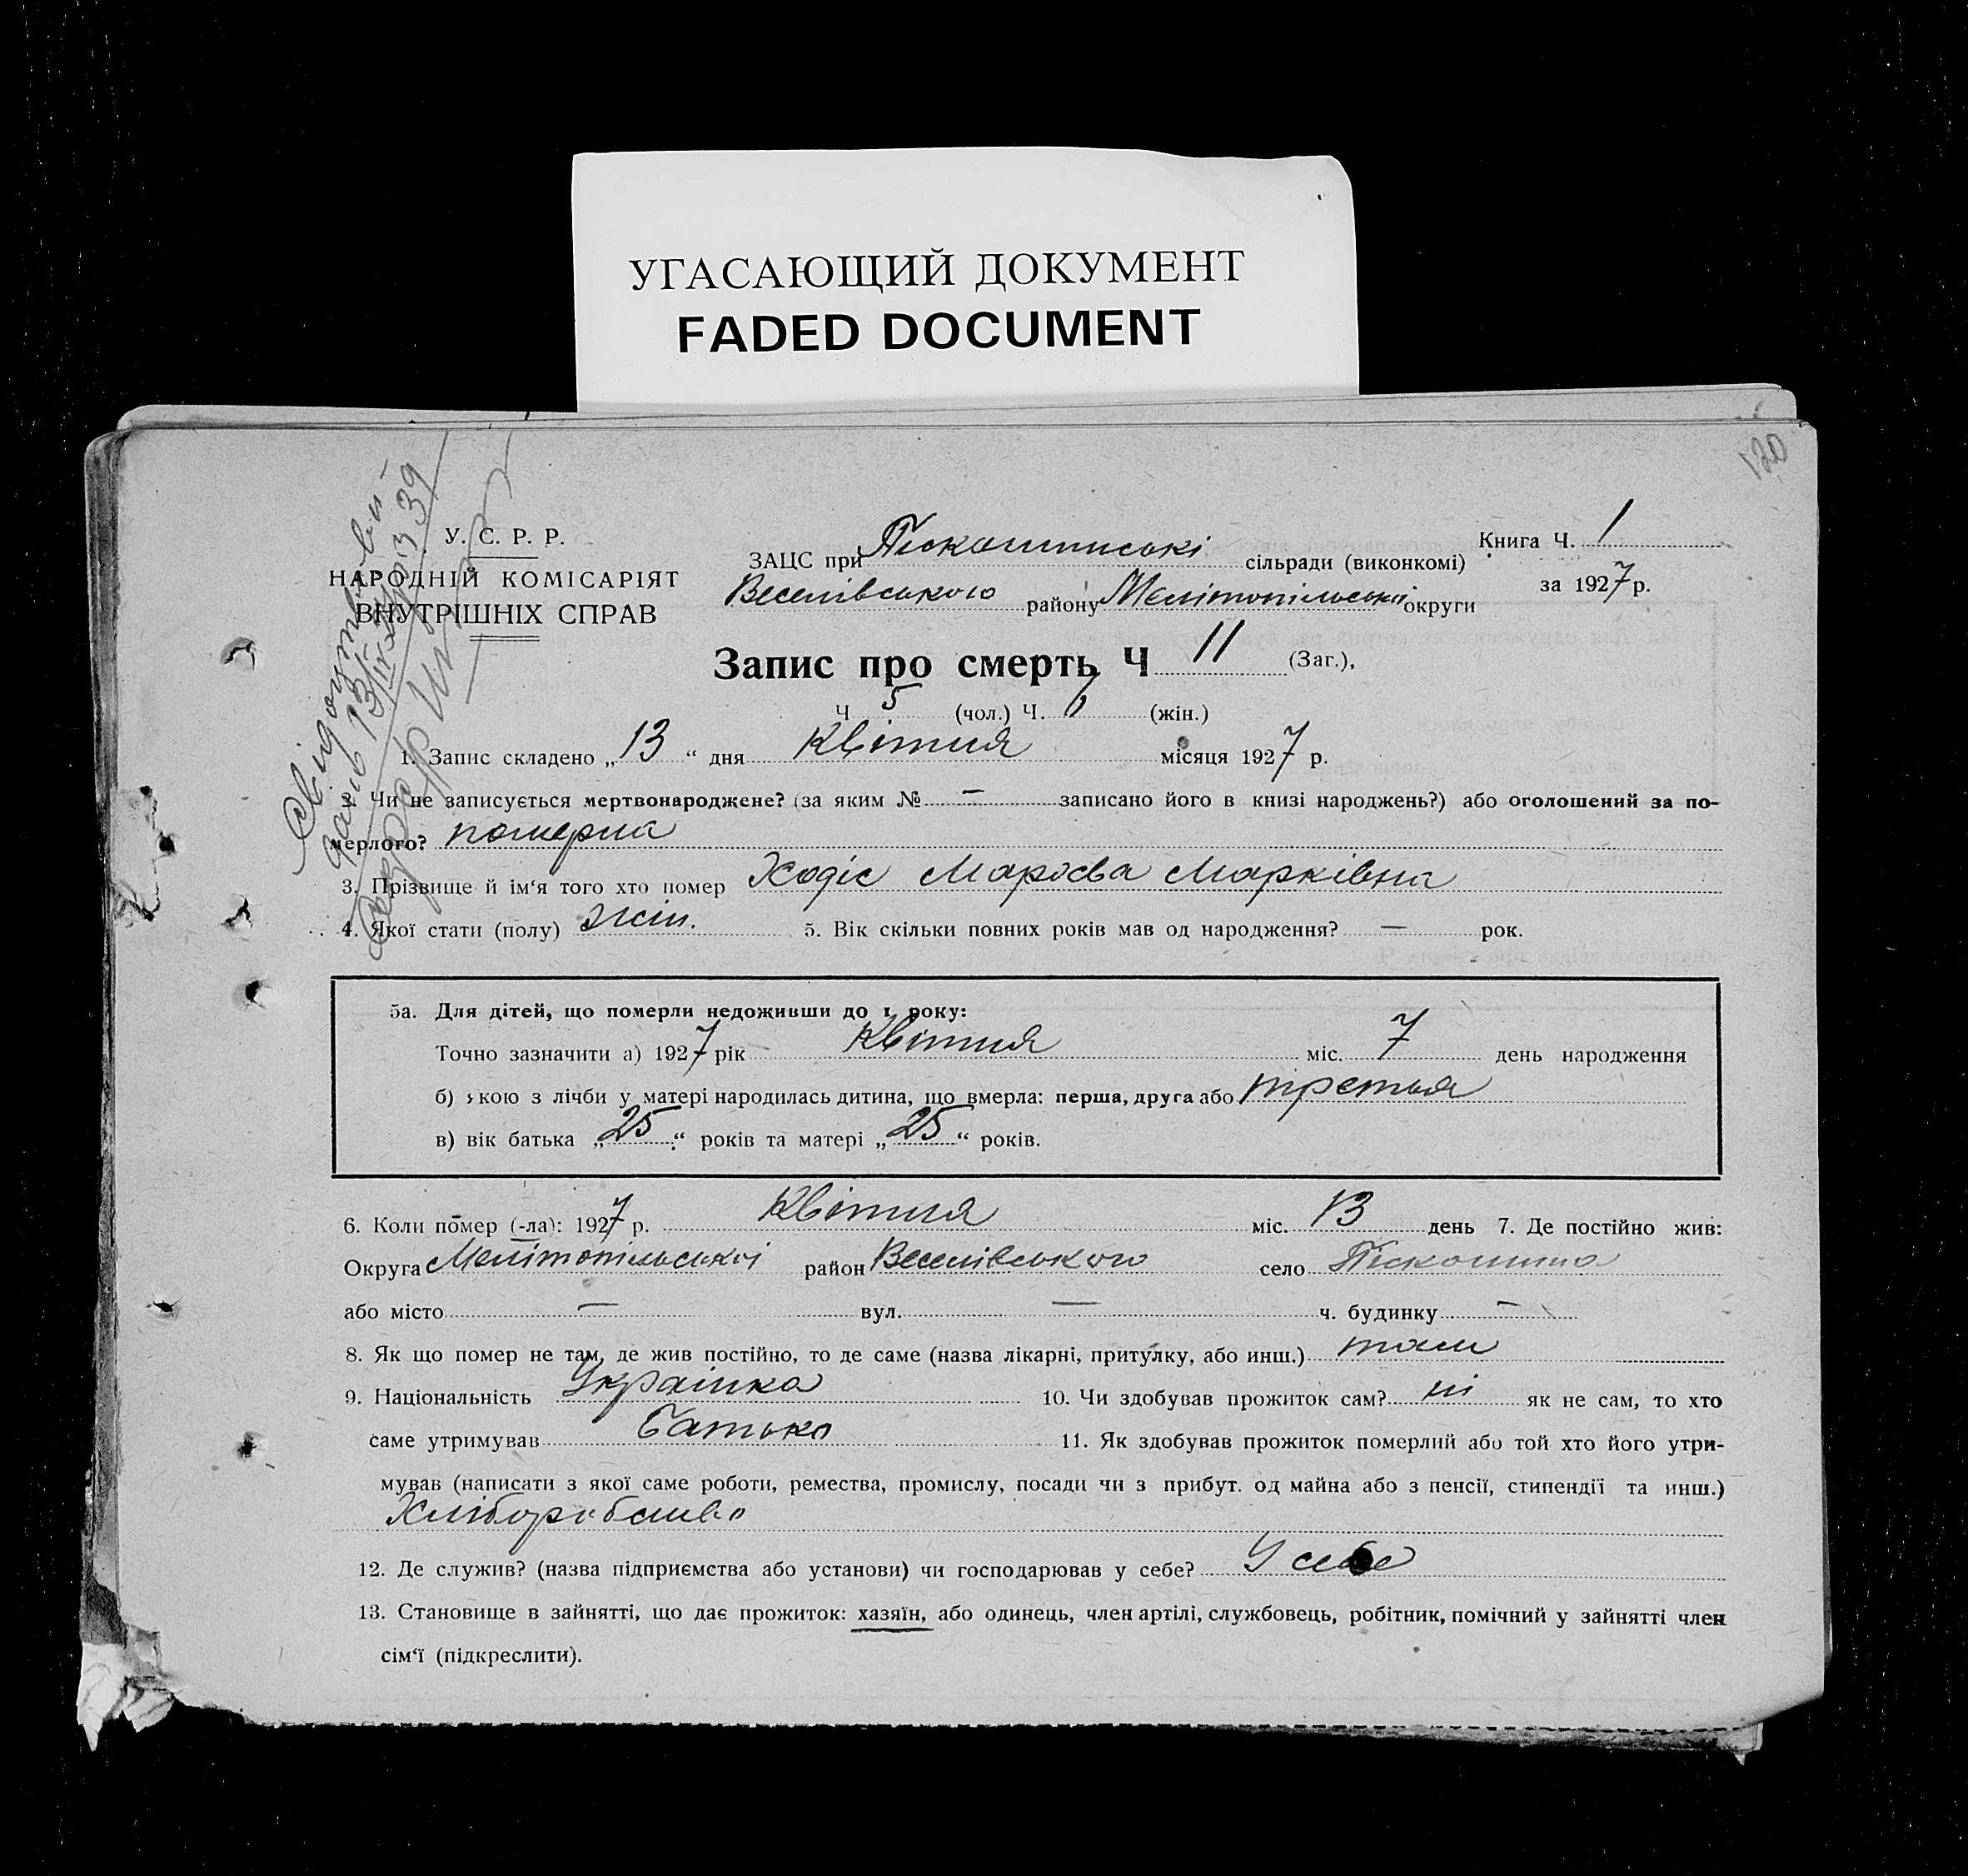 УГАСАЮЩИЙ ДОКУМЕНТ
FADED DOCUMENT
120
У. С. Р. Р.
НАРОДНІЙ КОМІСАРІЯТ
ВНУТРІШНІХ СПРАВ
ЗАЦС при Піскошинські сільради (виконкомі)
Веселівського району Мелітопільської округи
Книга Ч. 1
за 1927 р.
Запис про смерть Ч 11 (Заг.),
Ч 5 (чол.) Ч. 6 (жін.)
1. Запис складено „13“ дня Квітня місяця 1927 р.
Чи не записується мертвонароджене? (за яким № — записано його в книзі народжень?) або оголошений за по-
мерлого? померла
3. Прізвище й ім‘я того хто помер Ходіс Марӱєва Марківна
4. Якої стати (полу) жін. 5. Вік скільки повних років мав од народження? — рок.
5а. Для дітей, що померли недоживши до 1 року:
Точно зазначити а) 1927 рік Квітня міс. 7 день народження
б) якою з лічби у матері народилась дитина, що вмерла: перша, друга або третья
в) вік батька „25“ років та матері „25“ років.
6. Коли помер (-ла): 1927 р. Квітня міс. 13 день 7. Де постійно жив:
Округа Мелітопільської район Веселівського село Піскошино
або місто — вул. — ч. будинку —
8. Як що помер не там, де жив постійно, то де саме (назва лікарні, притулку, або инш.) там
9. Національність Украінка 10. Чи здобував прожиток сам? ні як не сам, то хто
саме утримував Батько 11. Як здобував прожиток померлий або той хто його утри-
мував (написати з якої саме роботи, ремества, промислу, посади чи з прибут. од майна або з пенсії, стипендії та инш.)
Хліборобство
12. Де служив? (назва підприємства або установи) чи господарював у себе? У себе
13. Становище в зайнятті, що дає прожиток: хазяїн, або одинець, член артілі, службовець, робітник, помічний у зайнятті член
сім‘ї (підкреслити).